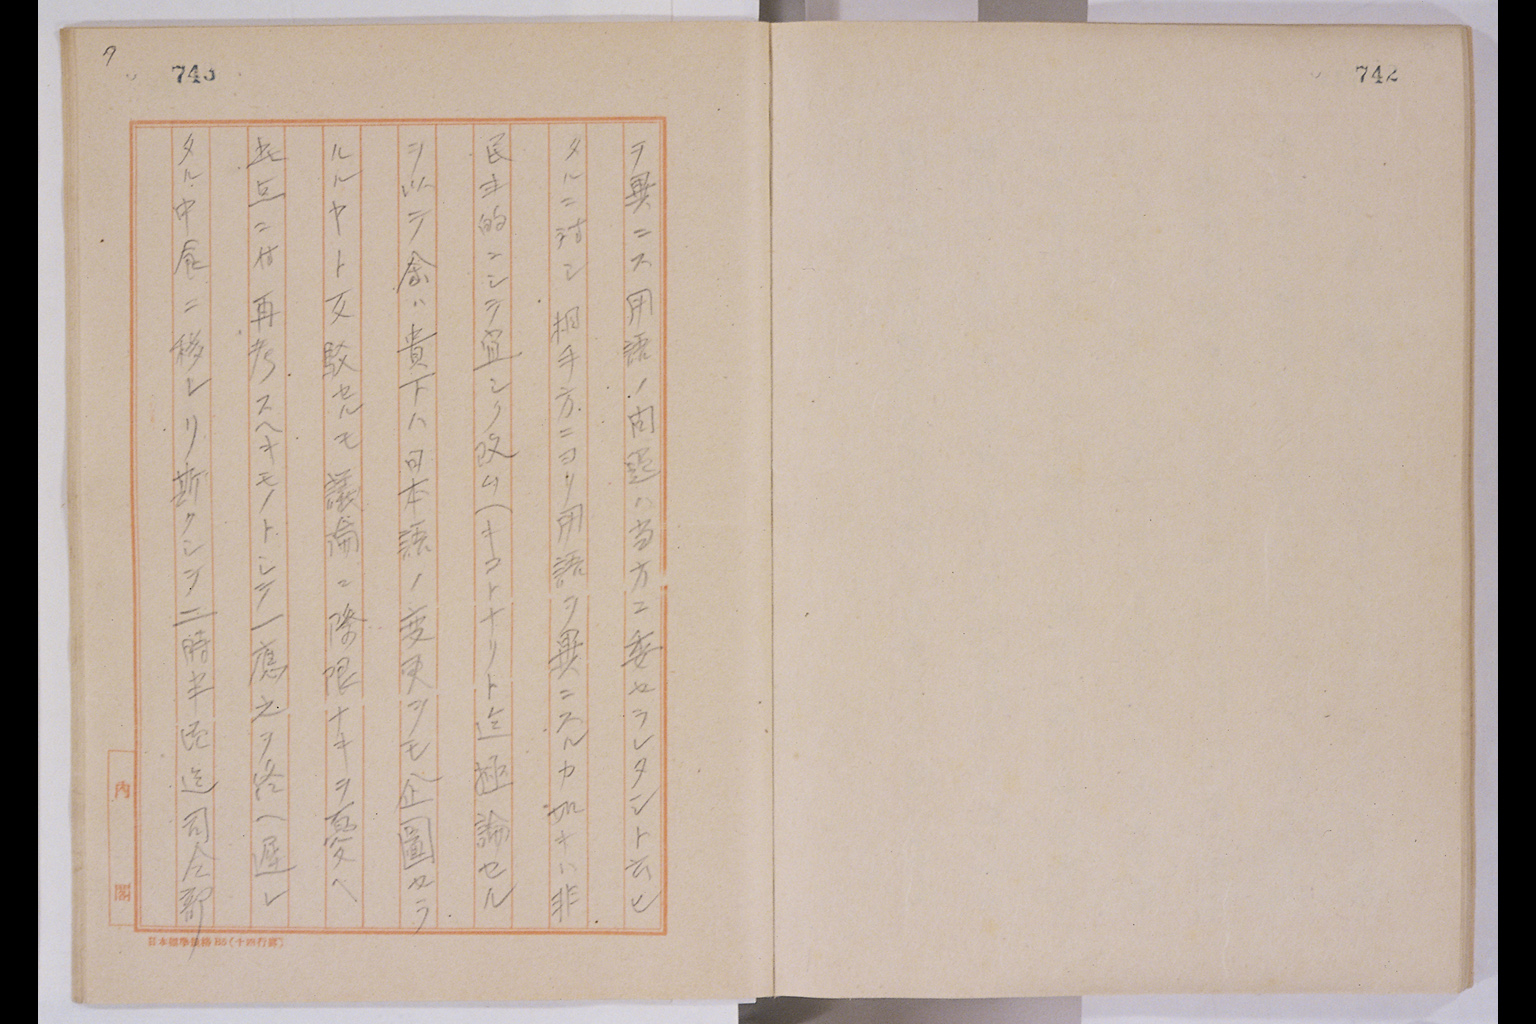 742
743
7
ヲ異ニス用語ノ問題ハ当方ニ委セラレタシト云ヒ
タルニ対シ相手方ニヨリ用語ヲ異ニスルカ如キハ非
民主的ニシテ宜シク改ムヘキコトナリト迄極論セル
ヲ以テ余ハ貴下ハ日本語ノ変更ヲモ企圖セラ
ルルヤト反駁セルモ議論ニ際限ナキヲ憂ヘ
此点ニ付再考スヘキモノトシテ一應之ヲ終ヘ遅レ
タル中食ニ移レリ斯クシテ二時半過迄司令部
内閣
日本標準規格B5(十四行罫)